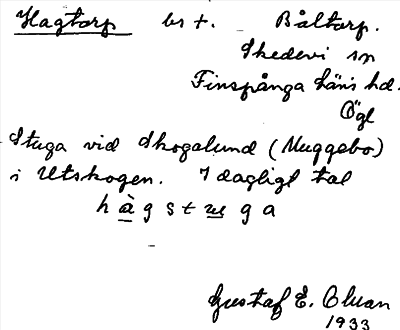 Hagtorp bs t. Båltorp.
Skedevi sn
Finspånga läns hd.
Ögl
Stuga vid Skogalund (Muggebo)
i Utskogen. I dagligt tal
h à g s t u g a
Gustaf E. Cluan
1933